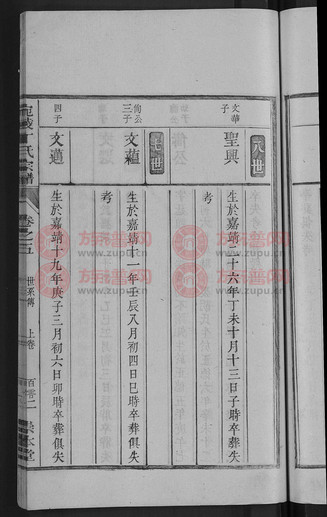 八世
文華子
聖興
生於嘉靖二十六年丁未十月十三日子時卒葬俱失
考
七世
三子
文蘊
生於嘉靖十一年壬辰八月初四日巳時卒葬俱失
考
四子
文邁
生於嘉靖十九年庚子三月初六日卯時卒葬俱失
宛陵丁氏宗譜
卷之五
世系傳
上卷
百零二
崇本堂
族谱网
www.zupu.cn